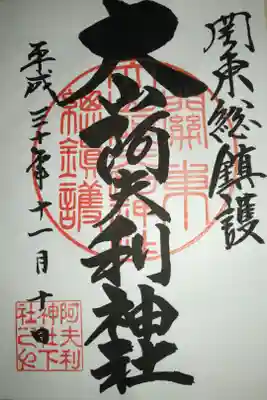 関東総鎮護
大山阿夫利神社
平成三十年十一月十日
關東總鎮護
阿夫利
神社下
社之印